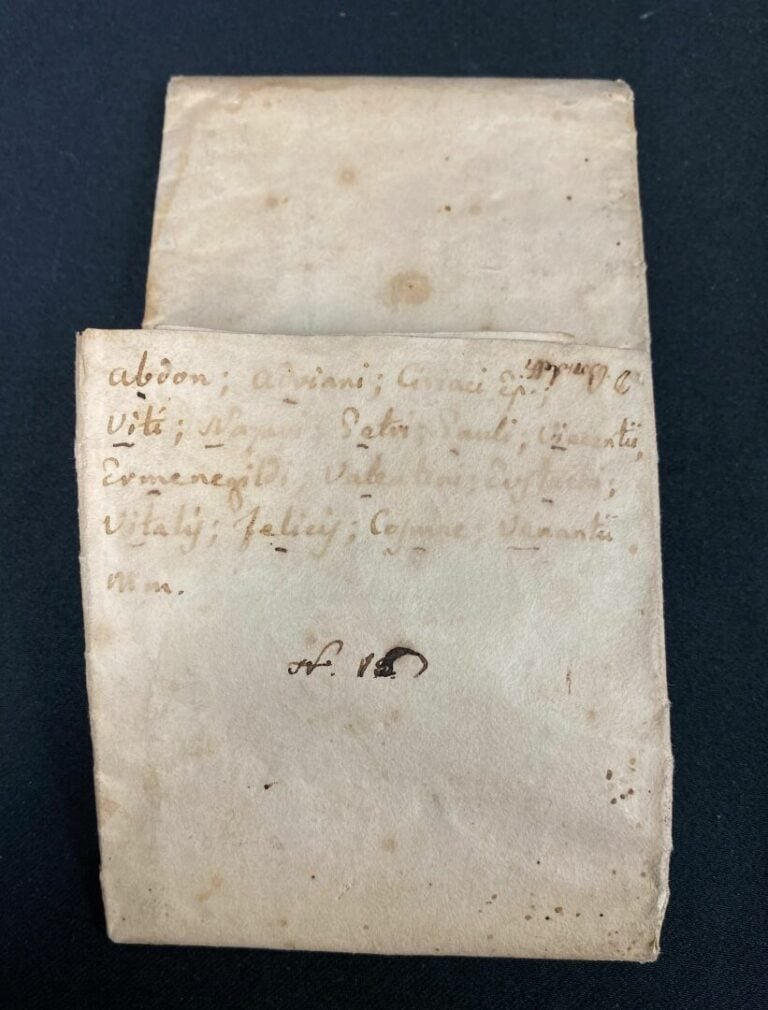 Abdon; Adriani; Ciriaci Ep.;
Viti; Nazari; Petri; Pauli; Vicentii,
Ermenegildi; Valentini; Eustachi;
Vitalij; felicij; Cosmae; Venantii
Mm.
N. 18